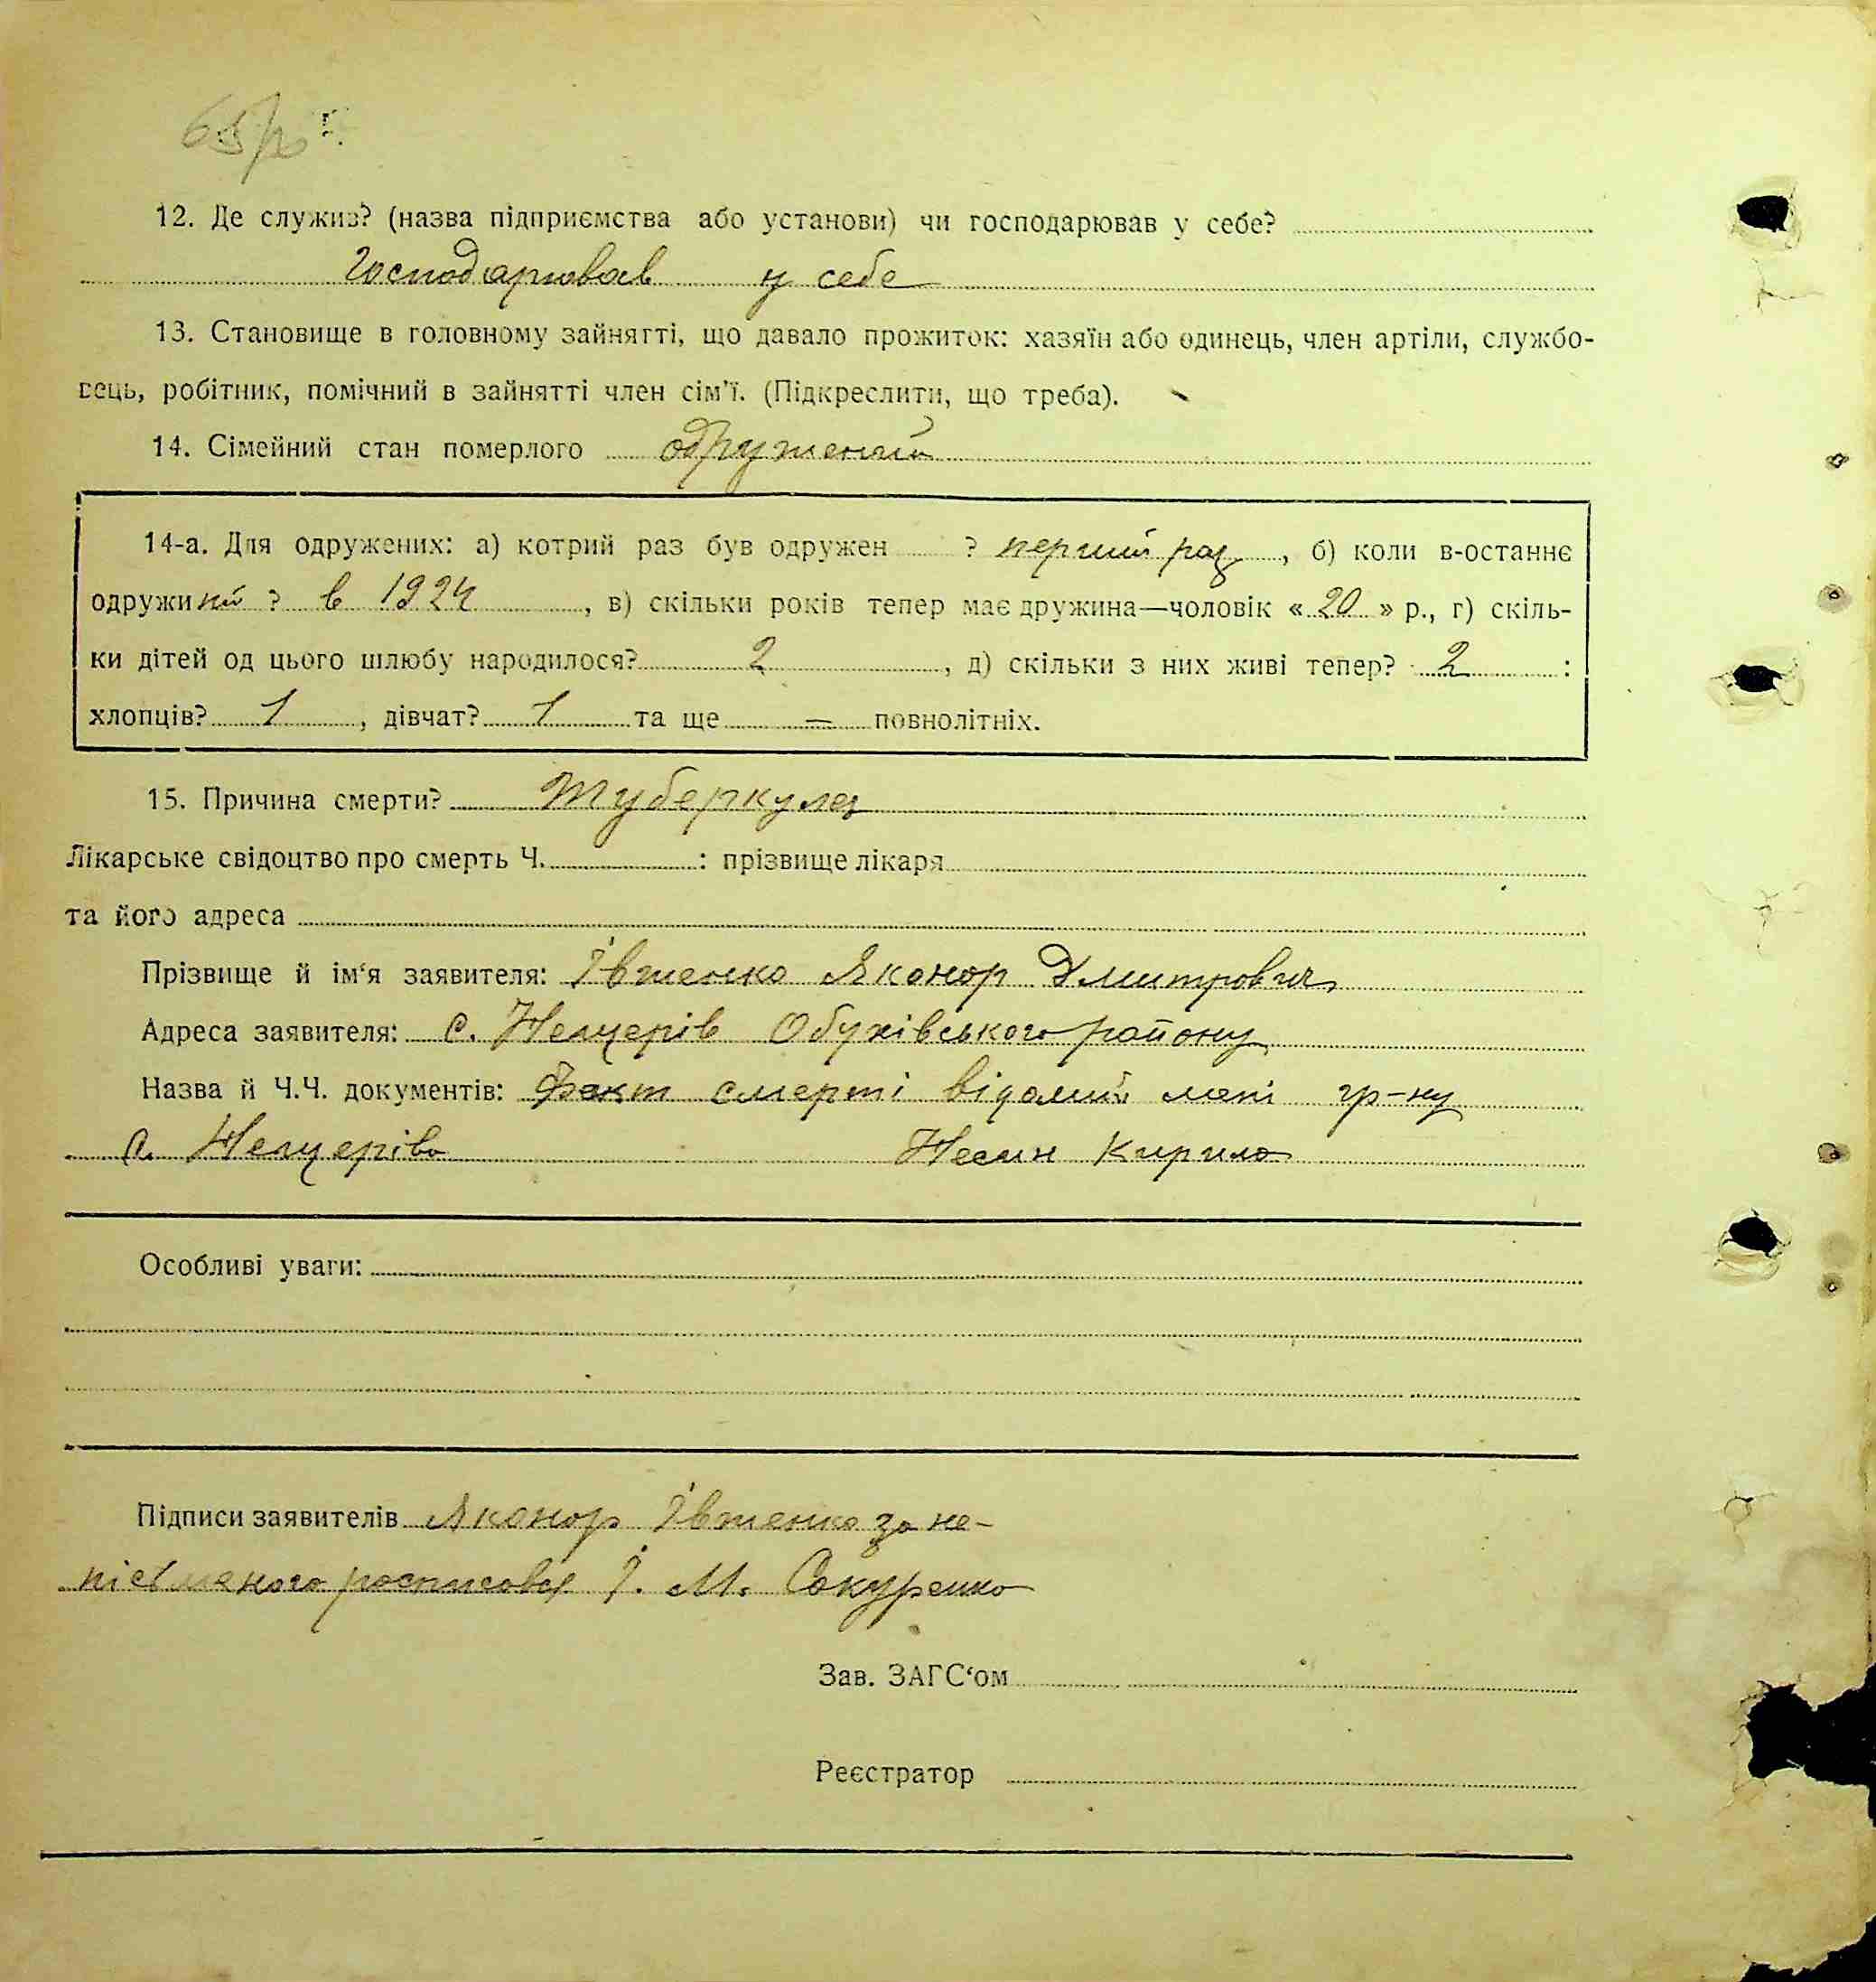 12. Де служив? (назва підприємства або установи) чи господарював у себе?
Господарював у себе
13. Становище в головному зайнятті, що давало прожиток: хазяїн або одинець, член артіли, службо-
вець, робітник, помічний в зайнятті член сім'ї. (Підкреслити, що треба).
14. Сімейний стан померлого одружений
14-а. Для одружених: а) котрий раз був одружен ? перший раз, б) коли в-останнє
одружиний ? в 1924, в) скільки років тепер має дружина—чоловік « 20 » р., г) скіль-
ки дітей од цього шлюбу народилося? 2, д) скільки з них живі тепер? 2 :
хлопців? 1, дівчат? 1 та ще = повнолітніх.
15. Причина смерти? Туберкулез
Лікарське свідоцтво про смерть Ч. : прізвище лікаря
та його адреса
Прізвище й ім'я заявителя: Івтенко Яконор Дмитрович
Адреса заявителя: с. Нещерів Обухівського району
Назва й Ч.Ч. документів: Факт смерті відомий мені гр-ну
с. Нещерів Несин Кирило
Особливі уваги:
Підписи заявителів Яконор Івтенко за не-
пісьменого росписовся І. М. Сокуренко
Зав. ЗАГС'ом
Реєстратор